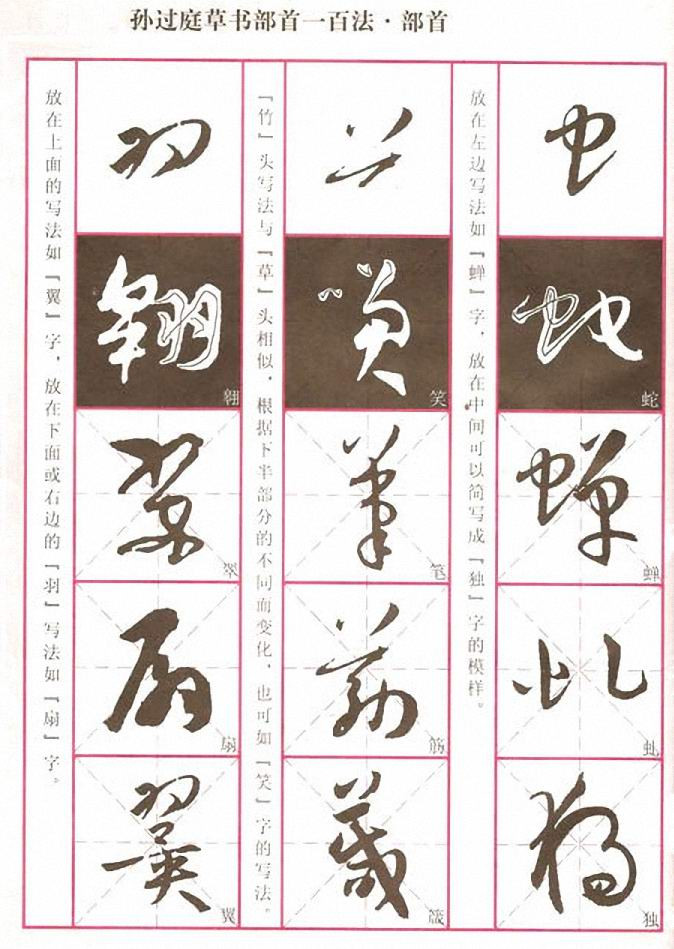 孙过庭草书部首一百法·部首
放在左边写法如『蝉』字，放在中间可以简写成『独』字的模样。
虫
蛇
蝉
虬
独
『竹』头写法与『草』头相似，根据下半部分的不同而变化，也可如『笑』字的写法。
笑
笔
筋
箴
放在上面的写法如『翼』字，放在下面或右边的『羽』写法如『扇』字。
羽
翱
翠
扇
翼